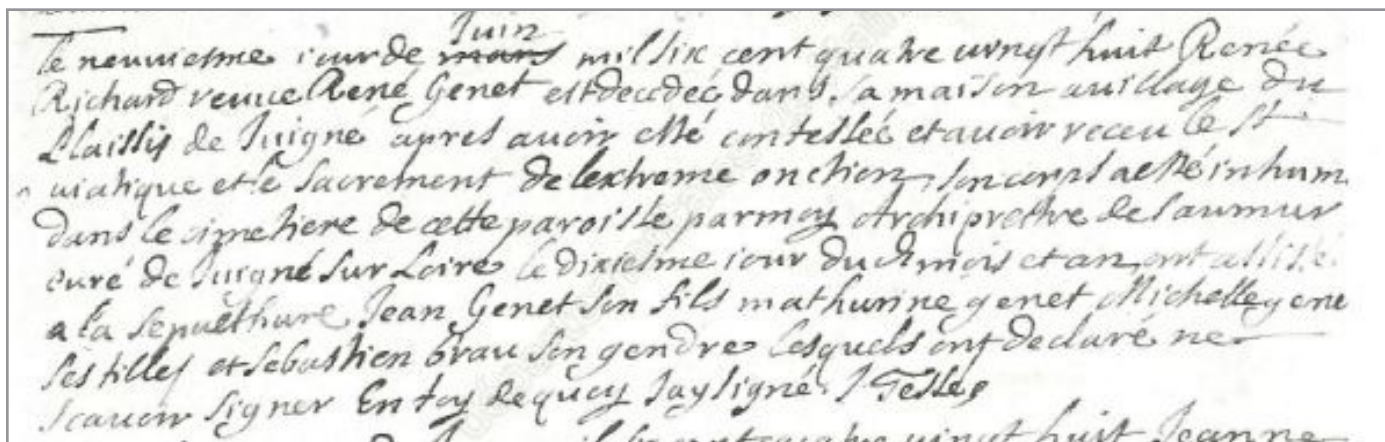 Juin
le neuuiesme iour de mars mil six cent quatre uingt huit Renée
Richard veuue René Genet est decedéé dans sa maison au uillage du
Plaissis de Juigné apres auoir esté confessée et auoir receu le St
uiatique et le Sacrement de lextreme onction, son corps a esté inhum
dans le cimetiere de cette paroisse par moy Archiprestre de Saumur
curé de Juigné sur Loire le dixiesme iour dudt mois et an, ont assisté
a la sepulthure Jean Genet son fils mathurine genet Michelle gene
ses filles et Sebastien brau son gendre lesquels ont declaré ne
scauoir signer En foy de quoy Jay signé. J
mil six cent quatre uingt huit Jeanne